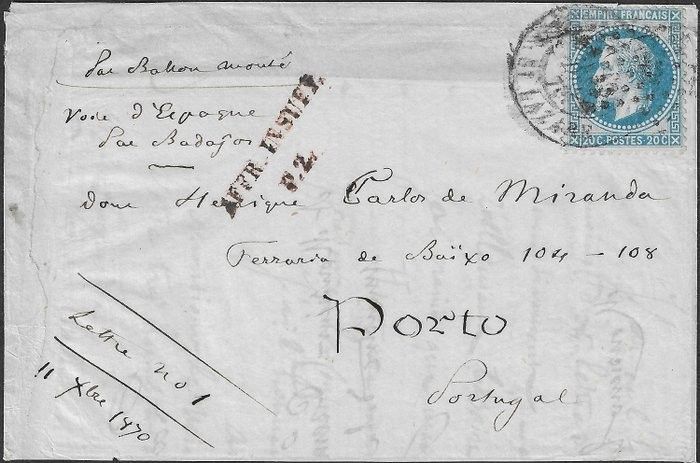 EMPIRE FRANÇAIS
20C POSTES 20C
Par Ballon monté
Voie d'Espagne
par Badajos
AFFR. INSUFF.
P.2.
Dom Henrique Carlos de Miranda
Ferraria de Baïxo 104 - 108
Porto
Portugal
Lettre no 1
11 Xbre 1870